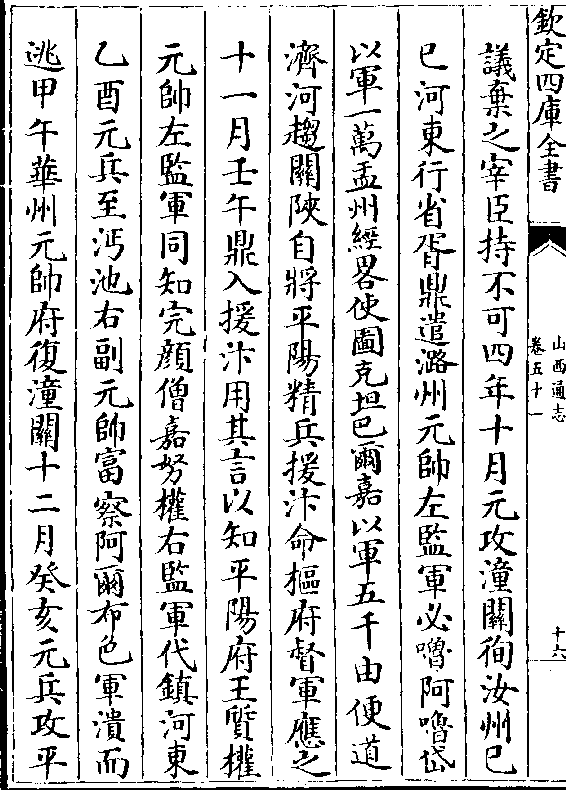 欽定四庫全書
山西通志
卷五十一
十六
議棄之宰臣持不可四年十月元攻潼關徇汝州已
巳河東行省胥鼎遣潞州元帥左監軍必嚕阿嚕岱
以軍一萬孟州經畧使圖克坦巴爾嘉以軍五千由便道
濟河趨關陜自將平陽精兵援汴命樞府督軍應之
十一月壬午鼎入援汴用其言以知平陽府王質權
元帥左監軍同知完顔僧嘉努權右監軍代鎮河東
乙酉元兵至沔池右副元帥富察阿爾布色軍潰而
逃甲午華州元帥府復潼關十二月癸亥元兵攻平